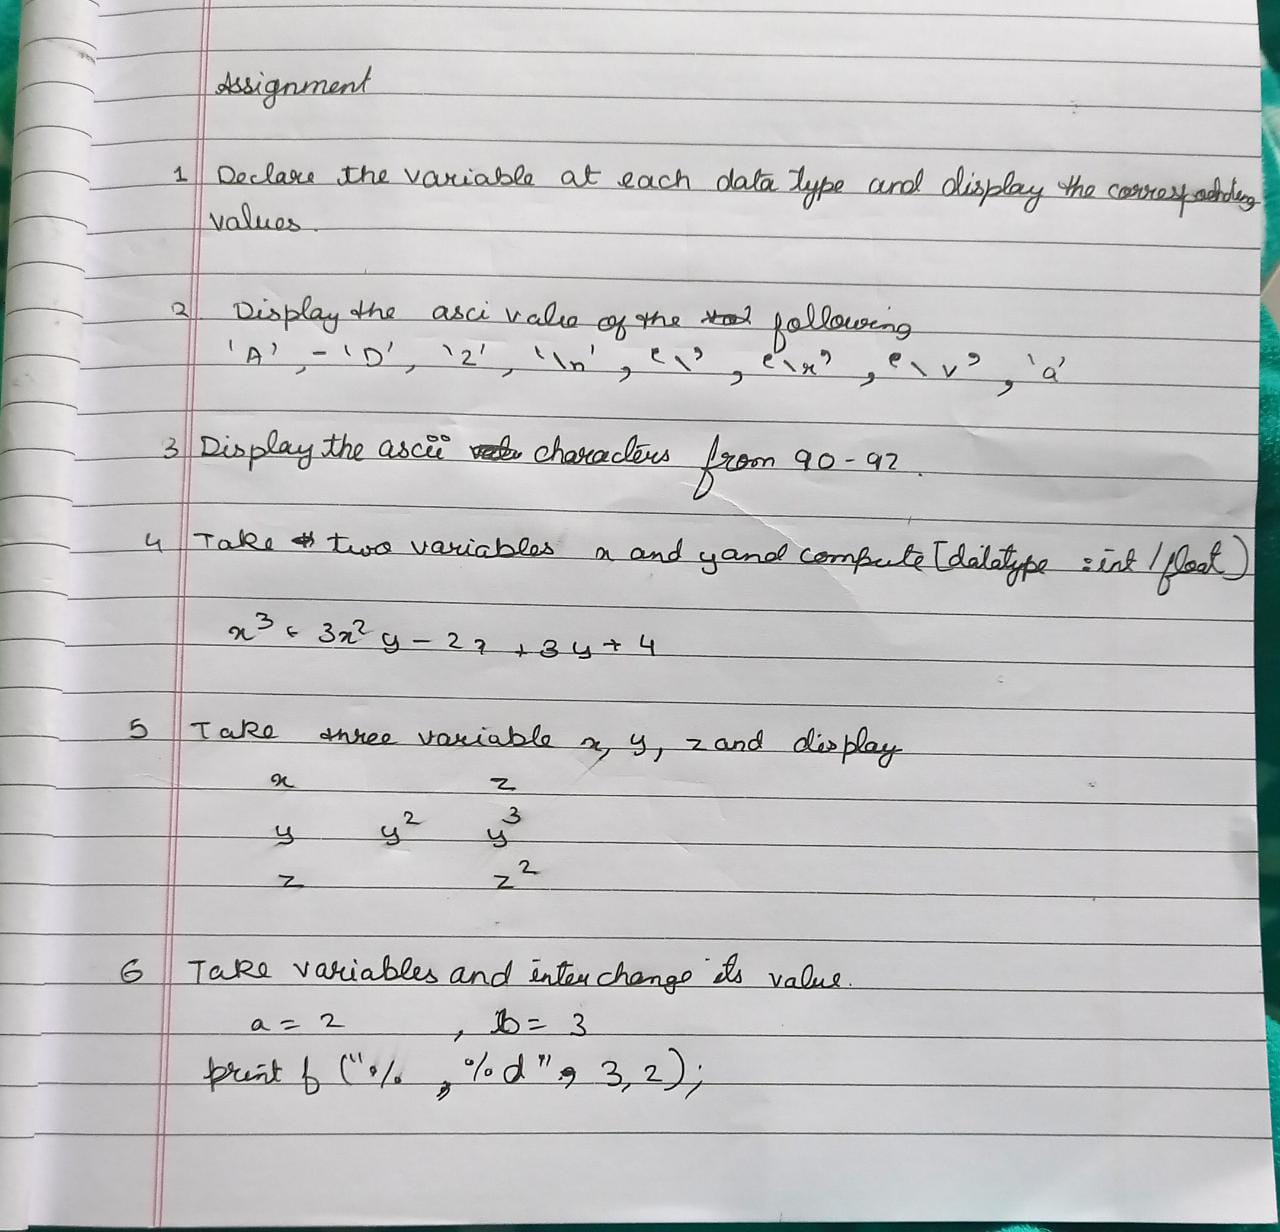 Assignment
1 Declare the variable at each data type and display the corresponding
values.
2 Display the asci value of the following
'A', - 'D', '2', '\n', '\', '\x', '\v', 'a'
3 Display the ascii characters from 90-92.
4 Take two variables x and y and compute [datatype : int / float)
x³ + 3x²y - 2x + 3y + 4
5 Take three variable x, y, z and display
x z
y y² y³
z z²
6 Take variables and interchange its value.
a = 2 , b = 3
printf ("% , %d", 3, 2);